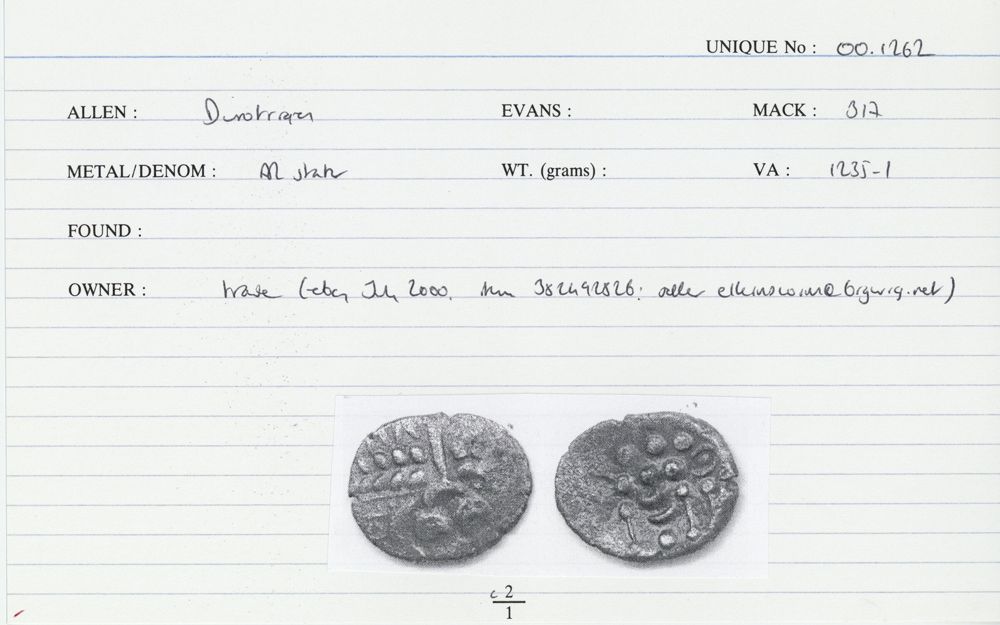 UNIQUE No : 00.1262
ALLEN : Durotriges EVANS : MACK : 317
METAL/DENOM : AR stater WT. (grams) : VA : 1235-1
FOUND :
OWNER : trade (ebay July 2000, item 382492826; seller
c 2
1